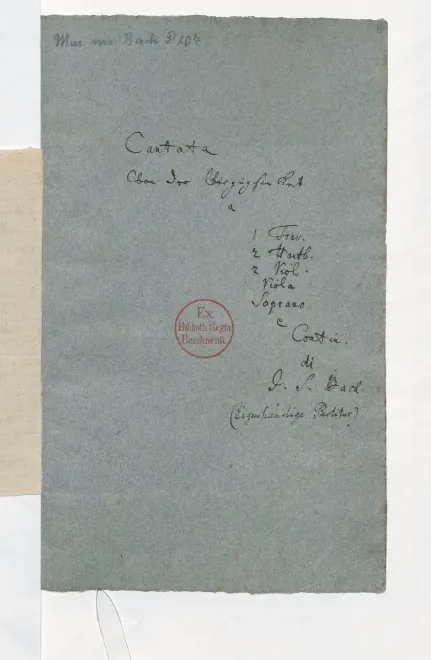 Mus. ms. Bach P 107
Cantata
Von der Vergnügsamkeit
a
1 Trav.
2 Hautb.
2 Viol.
Viola
Soprano
e
Contin.
di
J. S. Bach.
(Eigenhändige Partitur)
Ex
Biblioth. Regia
Berolinensi.